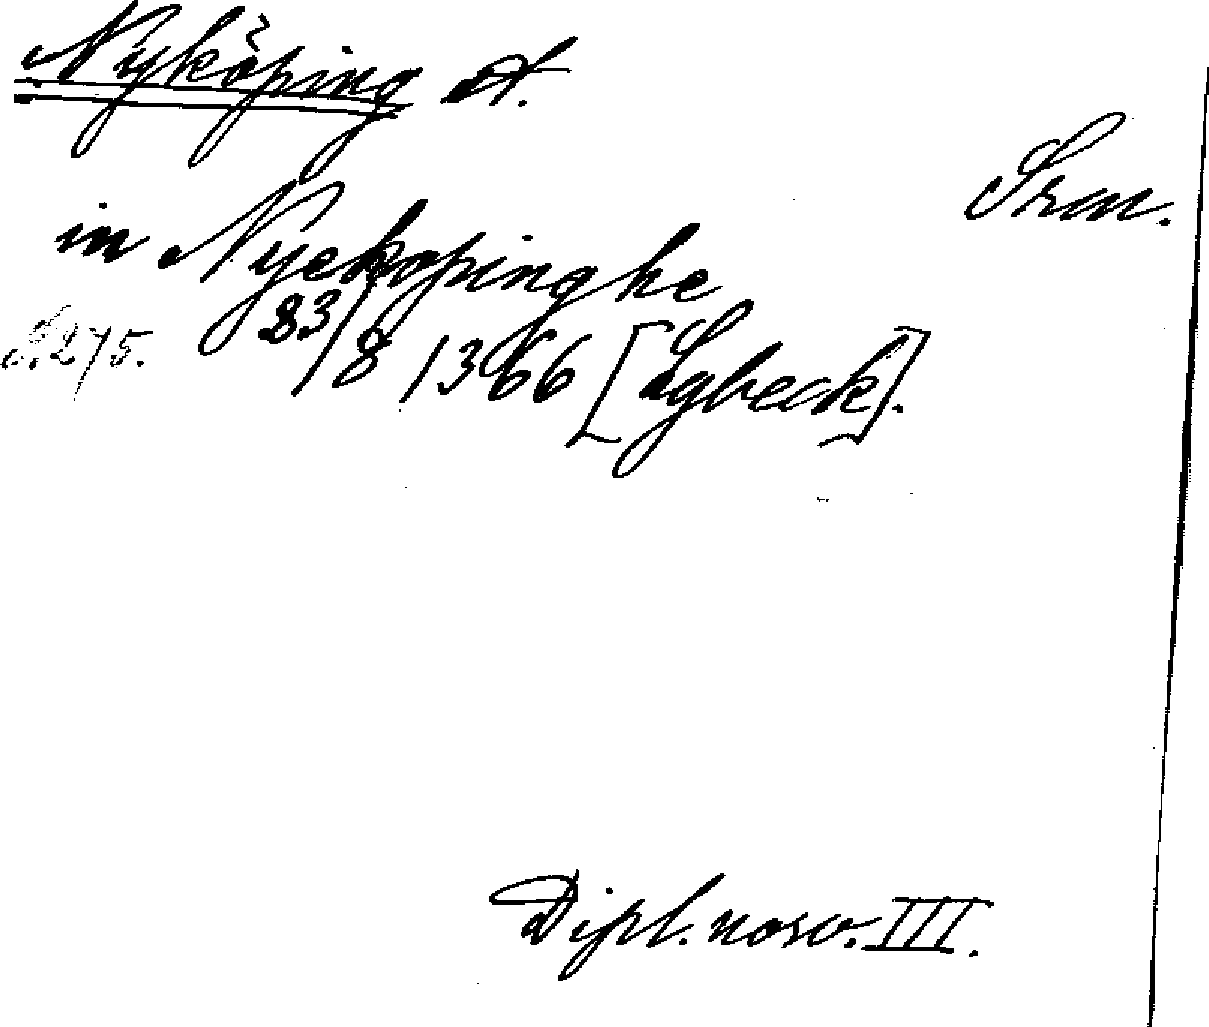 Nyköping st.
Srm.
in Nyekopinghe
S. 275. 23/8 1366 [Lybeck].
Dipl. norv. III.